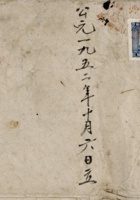 公元一九五二年十月六日立